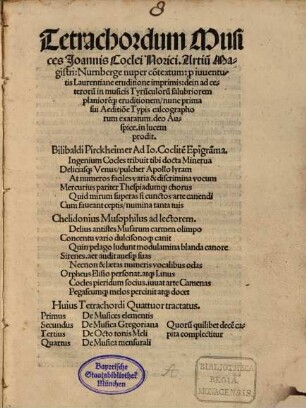 Tetrachordum Musi
ces Joannis Coclei Norici. Artiũ Ma
gistri: Nurnberge nuper cõtextum: p iuuentu
tis Laurentiane eruditione imprimis: dein ad ce
terorũ in musicis Tyrũculorũ salubriorem
planioremq; eruditionem/ nunc prima
sui Aeditiõe Typis calcographo
rum exaratum. deo Aus
pice. in lucem
prodit.
Bilibaldi Pirckheimer Ad Io. Coclitẽ Epigrãma.
Ingenium Cocles tribuit tibi docta Minerua
Deliciasq; Venus/ pulcher Apollo lyram
At numeros faciles varia & discrimina vocum
Mercurius pariter Thespiadumq; chorus
Quid mirum superas si cunctos arte canendi
Cum faueant ceptis/ numina tanta tuis
Chelidonius Musophilus ad lectorem.
Delius antistes Musarum carmen olimpo
Concentu vario dulcisonoq; canit
Quin pelago ludunt modulamina blanda canore
Sirenes. aer audit auesq; suas
Necnon & lætas numeris vocalibus odas
Orpheus Elisio personat. atq; Linus
Cocles pieridum socius. iuuat arte Camenas
Pegaseumq; melos percinit atq; docet
Huius Tetrachordi Quattuor tractatus.
Primus De Musices elementis
Secundus De Musica Gregoriana
Tertius De Octo tonis Meli
Quartus De Musica mensurali
Quorũ quilibet decẽ ca
pita complectitur
Bayerische
Staatsbibliothek
München
BIBLIOTHECA
REGIA
MONACENSIS.